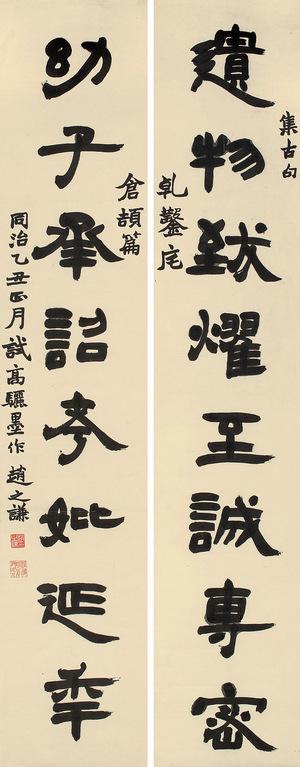 集古句
遺物致燿至誠專密
乾鑿度
倉頡篇
幼子承詔考妣延年
同治乙丑正月試高驪墨作 趙之謙